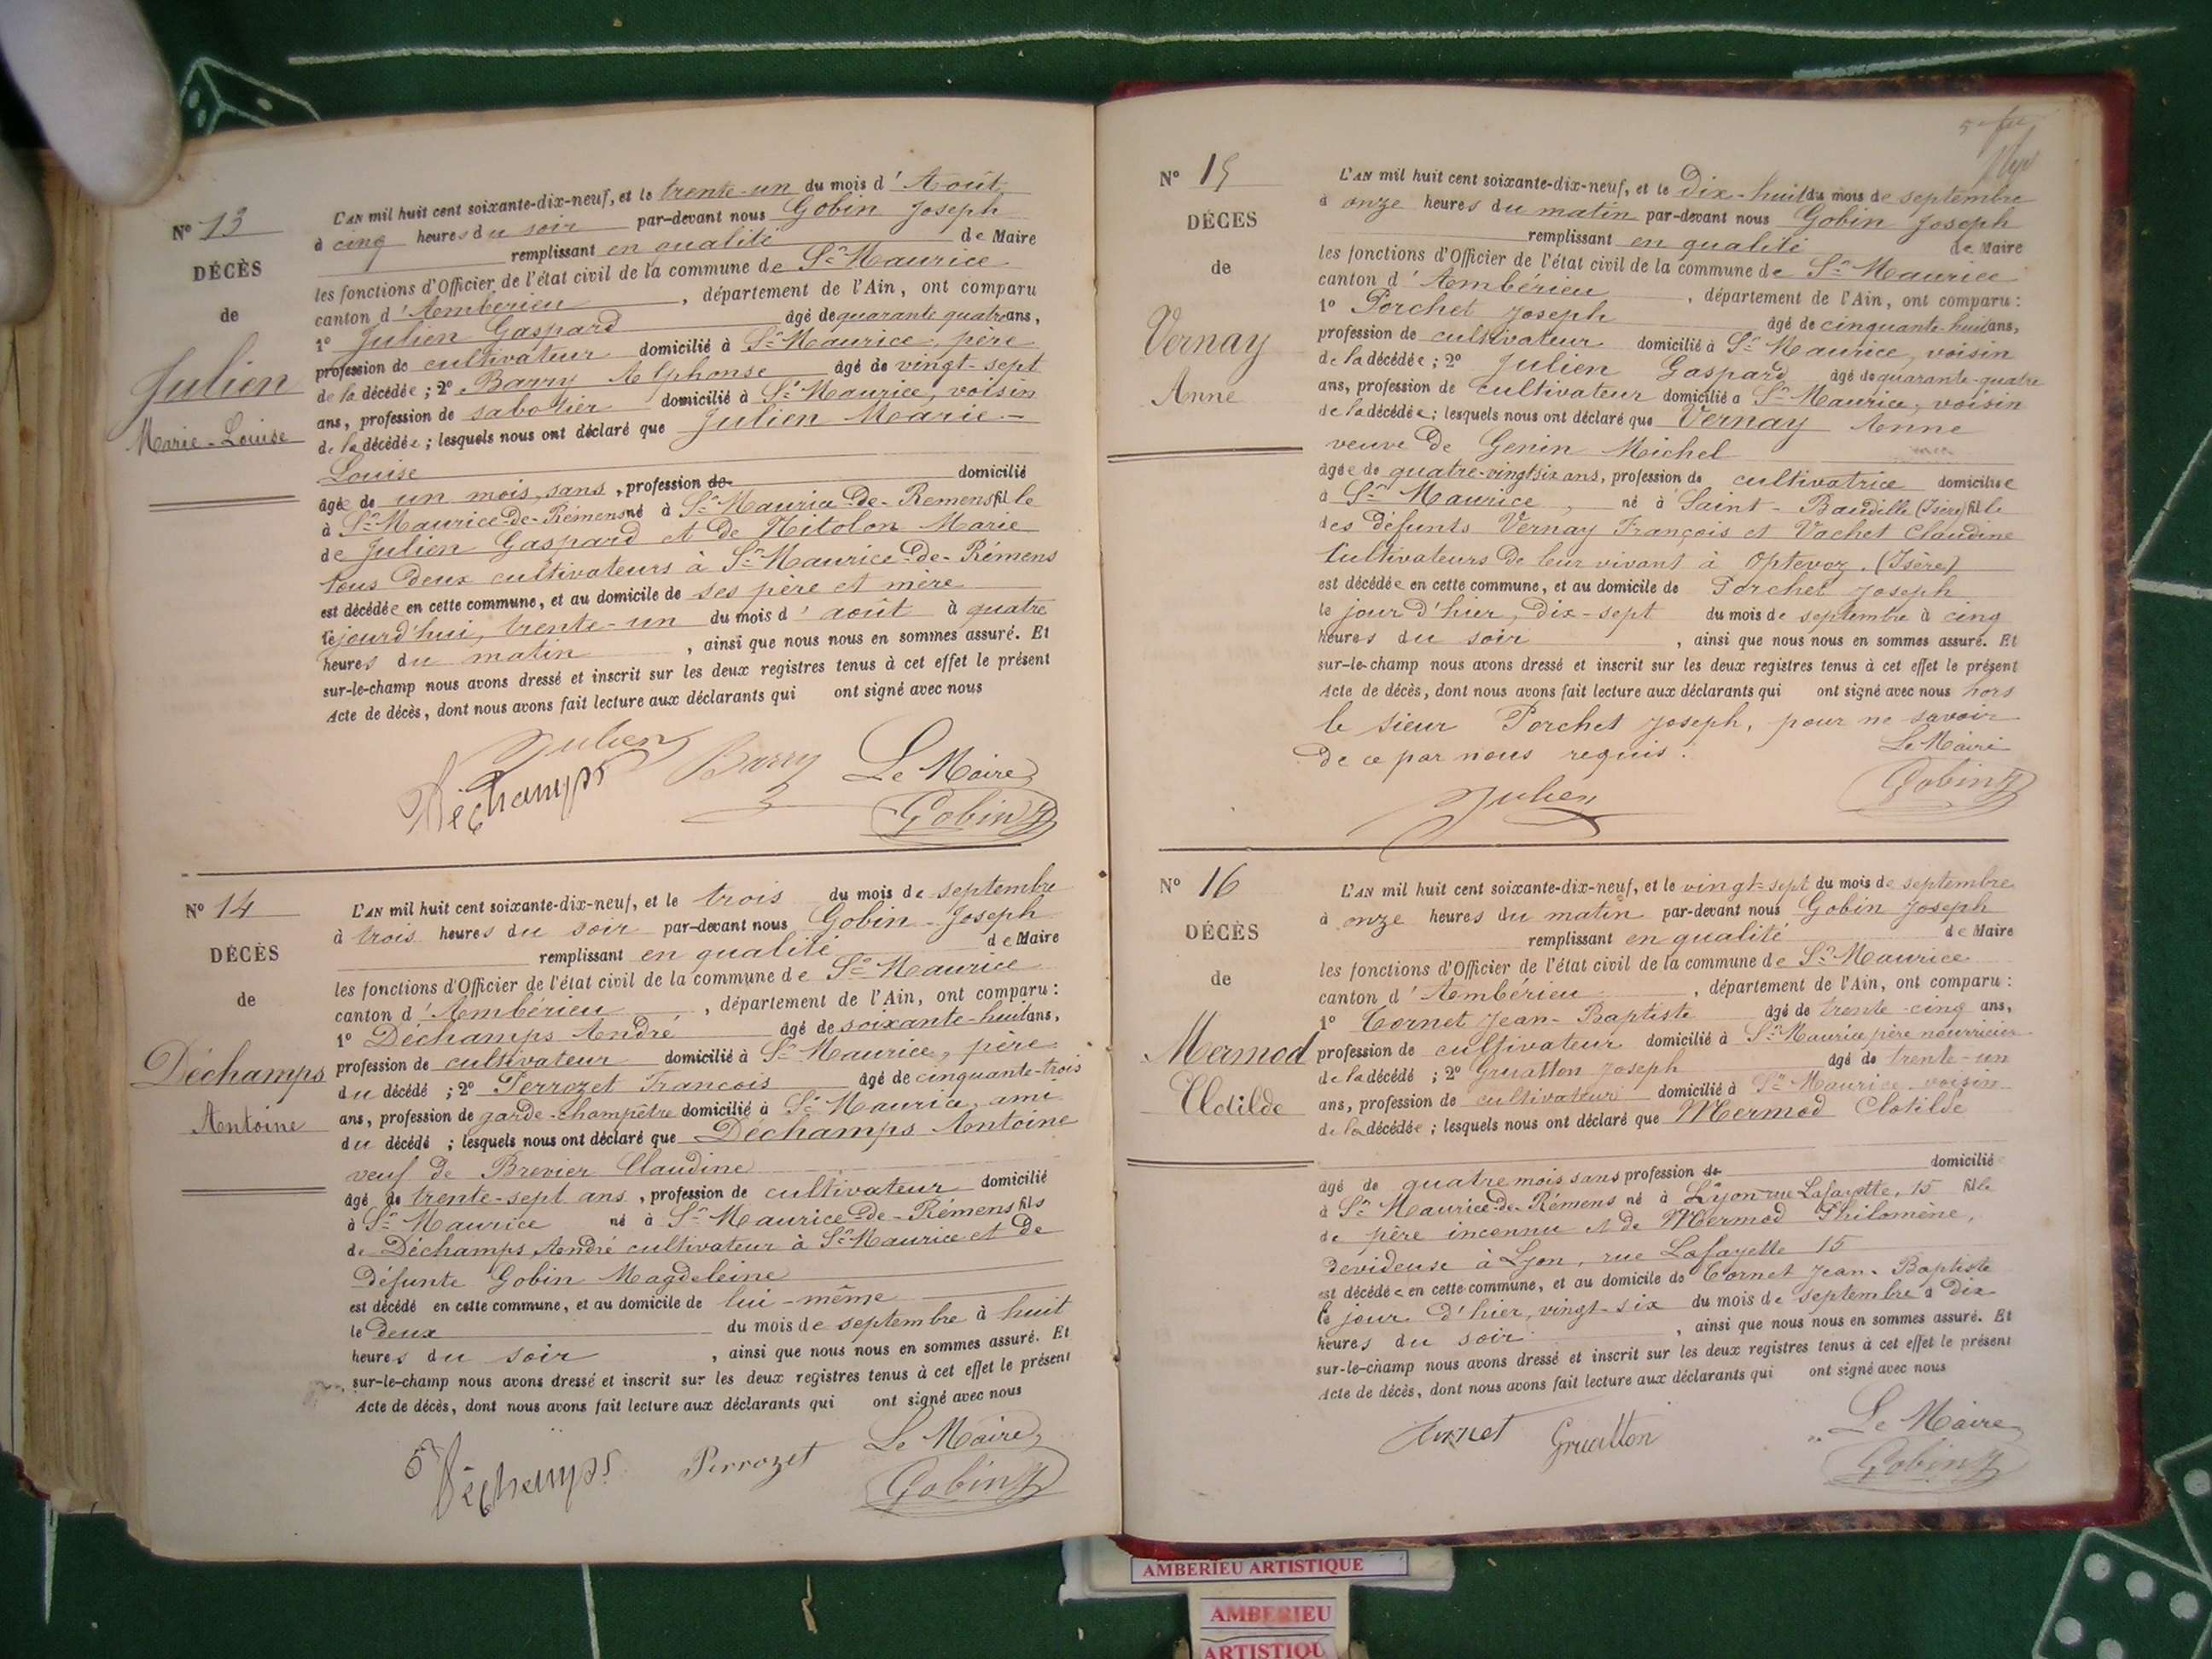 N° 13
DÉCÈS
de
Julien
Marie-Louise
L'AN mil huit cent soixante-dix-neuf, et le trente-un du mois d'Août
à cinq heures du soir par-devant nous Gobin Joseph
remplissant en qualité de Maire
les fonctions d'Officier de l'état civil de la commune de St Maurice
canton d'Ambérieu, département de l'Ain, ont comparu
1° Julien Gaspard âgé de quarante quatre ans,
profession de cultivateur domicilié à St Maurice, père
de la décédée ; 2° Barry Alphonse âgé de vingt-sept
ans, profession de sabotier domicilié à St Maurice, voisin
de la décédée ; lesquels nous ont déclaré que Julien Marie-
Louise
âgée de un mois, sans, profession de domicilié
à St Maurice-de-Rémens né à St Maurice-de-Remens fille
de Julien Gaspard et de Nitolon Marie
tous deux cultivateurs à St Maurice-de-Rémens
est décédée en cette commune, et au domicile de ses père et mère
le jourd'hui, trente-un du mois d'août à quatre
heures du matin, ainsi que nous nous en sommes assuré. Et
sur-le-champ nous avons dressé et inscrit sur les deux registres tenus à cet effet le présent
Acte de décès, dont nous avons fait lecture aux déclarants qui ont signé avec nous
Julien Barry Le Maire
Déchamps Gobin J
N° 14
DÉCÈS
de
Déchamps
Antoine
L'AN mil huit cent soixante-dix-neuf, et le trois du mois de septembre
à trois heures du soir par-devant nous Gobin Joseph
remplissant en qualité de Maire
les fonctions d'Officier de l'état civil de la commune de St Maurice
canton d'Ambérieu, département de l'Ain, ont comparu :
1° Déchamps André âgé de soixante-huit ans,
profession de cultivateur domicilié à St Maurice, père
du décédé ; 2° Perrozet François âgé de cinquante-trois
ans, profession de garde-champêtre domicilié à St Maurice, ami
du décédé ; lesquels nous ont déclaré que Déchamps Antoine
veuf de Brevier Claudine
âgé de trente-sept ans, profession de cultivateur domicilié
à St Maurice né à St Maurice-de-Rémens fils
de Déchamps André cultivateur à St Maurice et de
défunte Gobin Magdeleine
est décédé en cette commune, et au domicile de lui-même
le deux du mois de septembre à huit
heures du soir, ainsi que nous nous en sommes assuré. Et
sur-le-champ nous avons dressé et inscrit sur les deux registres tenus à cet effet le présent
Acte de décès, dont nous avons fait lecture aux déclarants qui ont signé avec nous
Déchamps Perrozet Le Maire
Gobin J
N° 15
DÉCÈS
de
Vernay
Anne
L'AN mil huit cent soixante-dix-neuf, et le Dix-huit du mois de septembre
à onze heures du matin par-devant nous Gobin Joseph
remplissant en qualité de Maire
les fonctions d'Officier de l'état civil de la commune de St Maurice
canton d'Ambérieu, département de l'Ain, ont comparu :
1° Porchet Joseph âgé de cinquante-huit ans,
profession de cultivateur domicilié à St Maurice, voisin
de la décédée ; 2° Julien Gaspard âgé de quarante-quatre
ans, profession de cultivateur domicilié à St Maurice, voisin
de la décédée ; lesquels nous ont déclaré que Vernay Anne
veuve de Genin Michel
âgée de quatre-vingt six ans, profession de cultivatrice domiciliée
à St Maurice, né à Saint-Baudille (Isère) fille
des défunts Vernay François et Vachet Claudine
Cultivateurs de leur vivant à Optevoz. (Isère)
est décédée en cette commune, et au domicile de Porchet Joseph
le jour d'hier, dix-sept du mois de septembre à cinq
heures du soir, ainsi que nous nous en sommes assuré. Et
sur-le-champ nous avons dressé et inscrit sur les deux registres tenus à cet effet le présent
Acte de décès, dont nous avons fait lecture aux déclarants qui ont signé avec nous hors
le sieur Porchet Joseph, pour ne savoir
de ce par nous requis.
Le Maire
Julien Gobin J
N° 16
DÉCÈS
de
Mermod
Clotilde
L'AN mil huit cent soixante-dix-neuf, et le vingt-sept du mois de septembre
à onze heures du matin par-devant nous Gobin Joseph
remplissant en qualité de Maire
les fonctions d'Officier de l'état civil de la commune de St Maurice
canton d'Ambérieu, département de l'Ain, ont comparu :
1° Cornet Jean-Baptiste âgé de trente-cinq ans,
profession de cultivateur domicilié à St Maurice père nourricier
de la décédé ; 2° Gruatton Joseph âgé de trente-un
ans, profession de cultivateur domicilié à St Maurice voisin
de la décédée ; lesquels nous ont déclaré que Mermod Clotilde
âgé de quatre mois sans profession de domicilié
à St Maurice-de-Rémens né à Lyon rue Lafayette, 15 fille
de père inconnu et de Mermod Philomène,
devideuse à Lyon, rue Lafayette 15
est décédée en cette commune, et au domicile de Cornet Jean-Baptiste
le jour d'hier, vingt-six du mois de septembre à dix
heures du soir, ainsi que nous nous en sommes assuré. Et
sur-le-champ nous avons dressé et inscrit sur les deux registres tenus à cet effet le présent
Acte de décès, dont nous avons fait lecture aux déclarants qui ont signé avec nous
Cornet Gruatton Le Maire
Gobin J
AMBERIEU ARTISTIQUE
AMBERIEU
ARTISTIQU